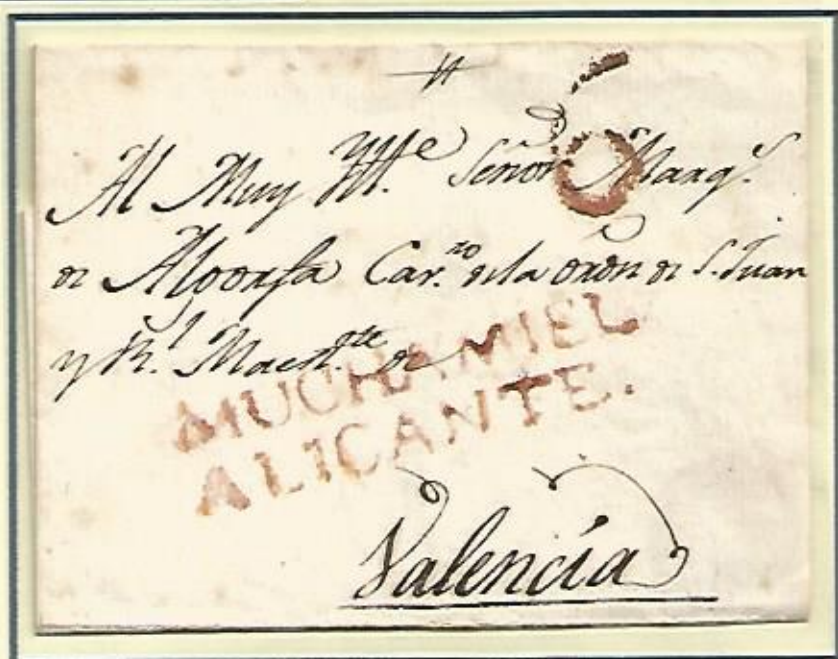 6
Al Muy Ylle. Señor Marqs.
de Cav.ro de la orden de S. Juan
y Rl. Maest.te de
MUCHAMIEL
ALICANTE.
Valencia